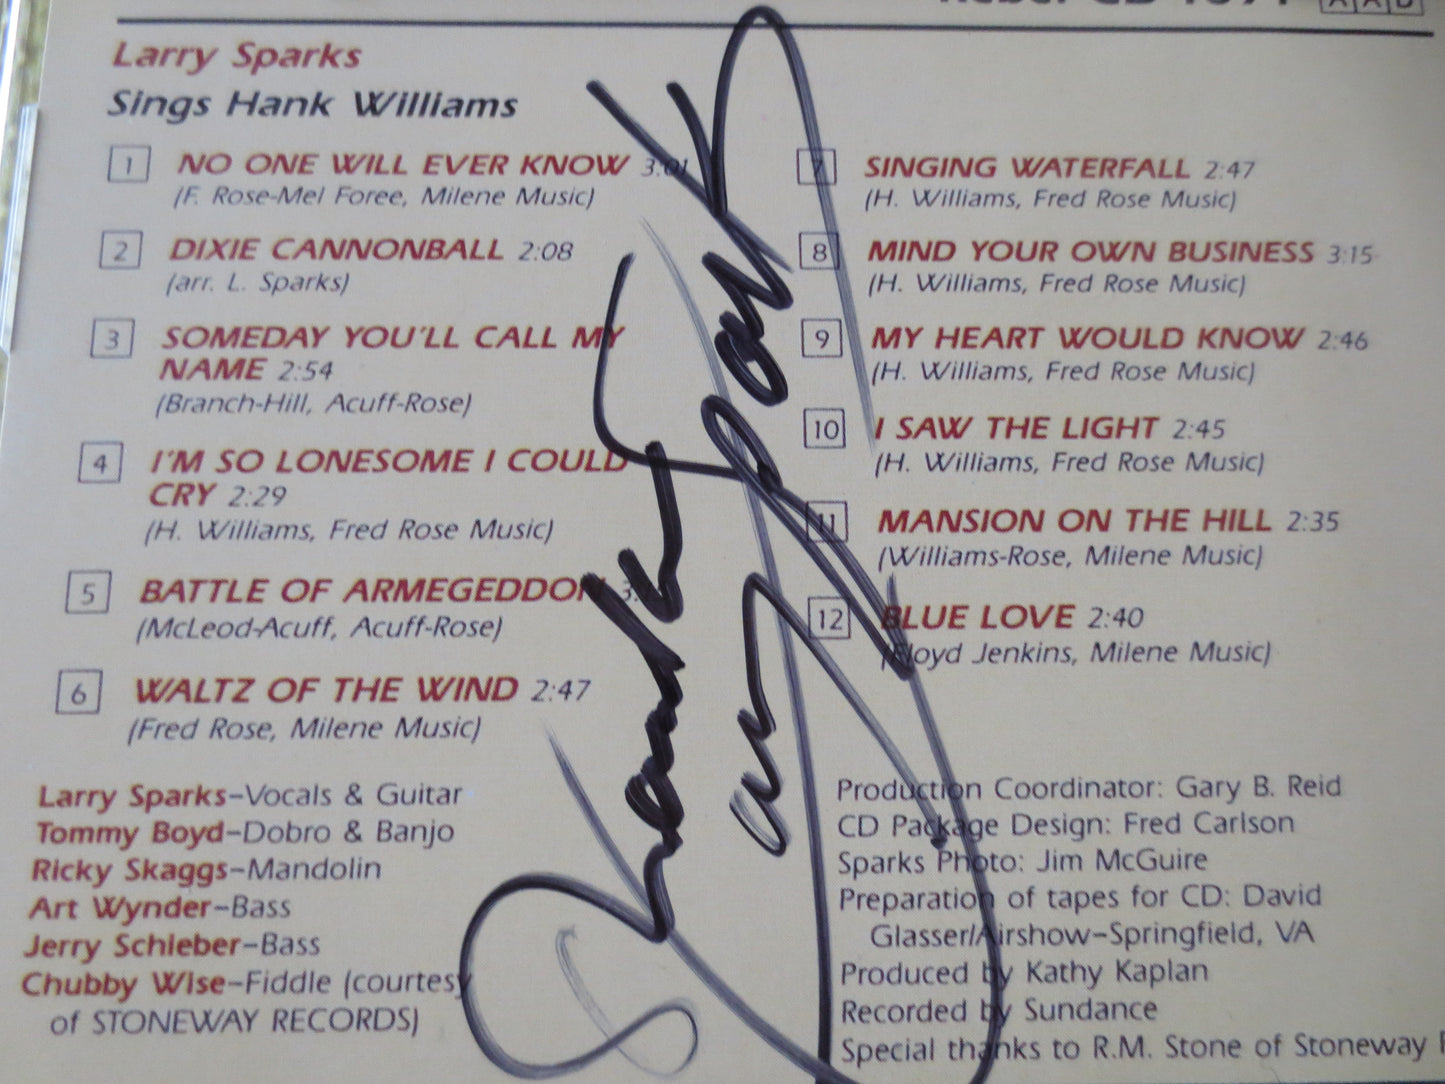 Larry Sparks
Sings Hank Williams
1 NO ONE WILL EVER KNOW 3:01
(F. Rose-Mel Foree, Milene Music)
2 DIXIE CANNONBALL 2:08
(arr. L. Sparks)
3 SOMEDAY YOU'LL CALL MY
NAME 2:54
(Branch-Hill, Acuff-Rose)
4 I'M SO LONESOME I COULD
CRY 2:29
(H. Williams, Fred Rose Music)
5 BATTLE OF ARMEGEDDON
(McLeod-Acuff, Acuff-Rose)
6 WALTZ OF THE WIND 2:47
(Fred Rose, Milene Music)
Larry Sparks–Vocals & Guitar
Tommy Boyd–Dobro & Banjo
Ricky Skaggs–Mandolin
Art Wynder–Bass
Jerry Schleber–Bass
Chubby Wise–Fiddle (courtesy
of STONEWAY RECORDS)
AAD
7 SINGING WATERFALL 2:47
(H. Williams, Fred Rose Music)
8 MIND YOUR OWN BUSINESS 3:15
(H. Williams, Fred Rose Music)
9 MY HEART WOULD KNOW 2:46
(H. Williams, Fred Rose Music)
10 I SAW THE LIGHT 2:45
(H. Williams, Fred Rose Music)
11 MANSION ON THE HILL 2:35
(Williams-Rose, Milene Music)
12 BLUE LOVE 2:40
(Floyd Jenkins, Milene Music)
Production Coordinator: Gary B. Reid
CD Package Design: Fred Carlson
Sparks Photo: Jim McGuire
Preparation of tapes for CD: David
Glasser/Airshow–Springfield, VA
Produced by Kathy Kaplan
Recorded by Sundance
Special thanks to R.M. Stone of Stoneway